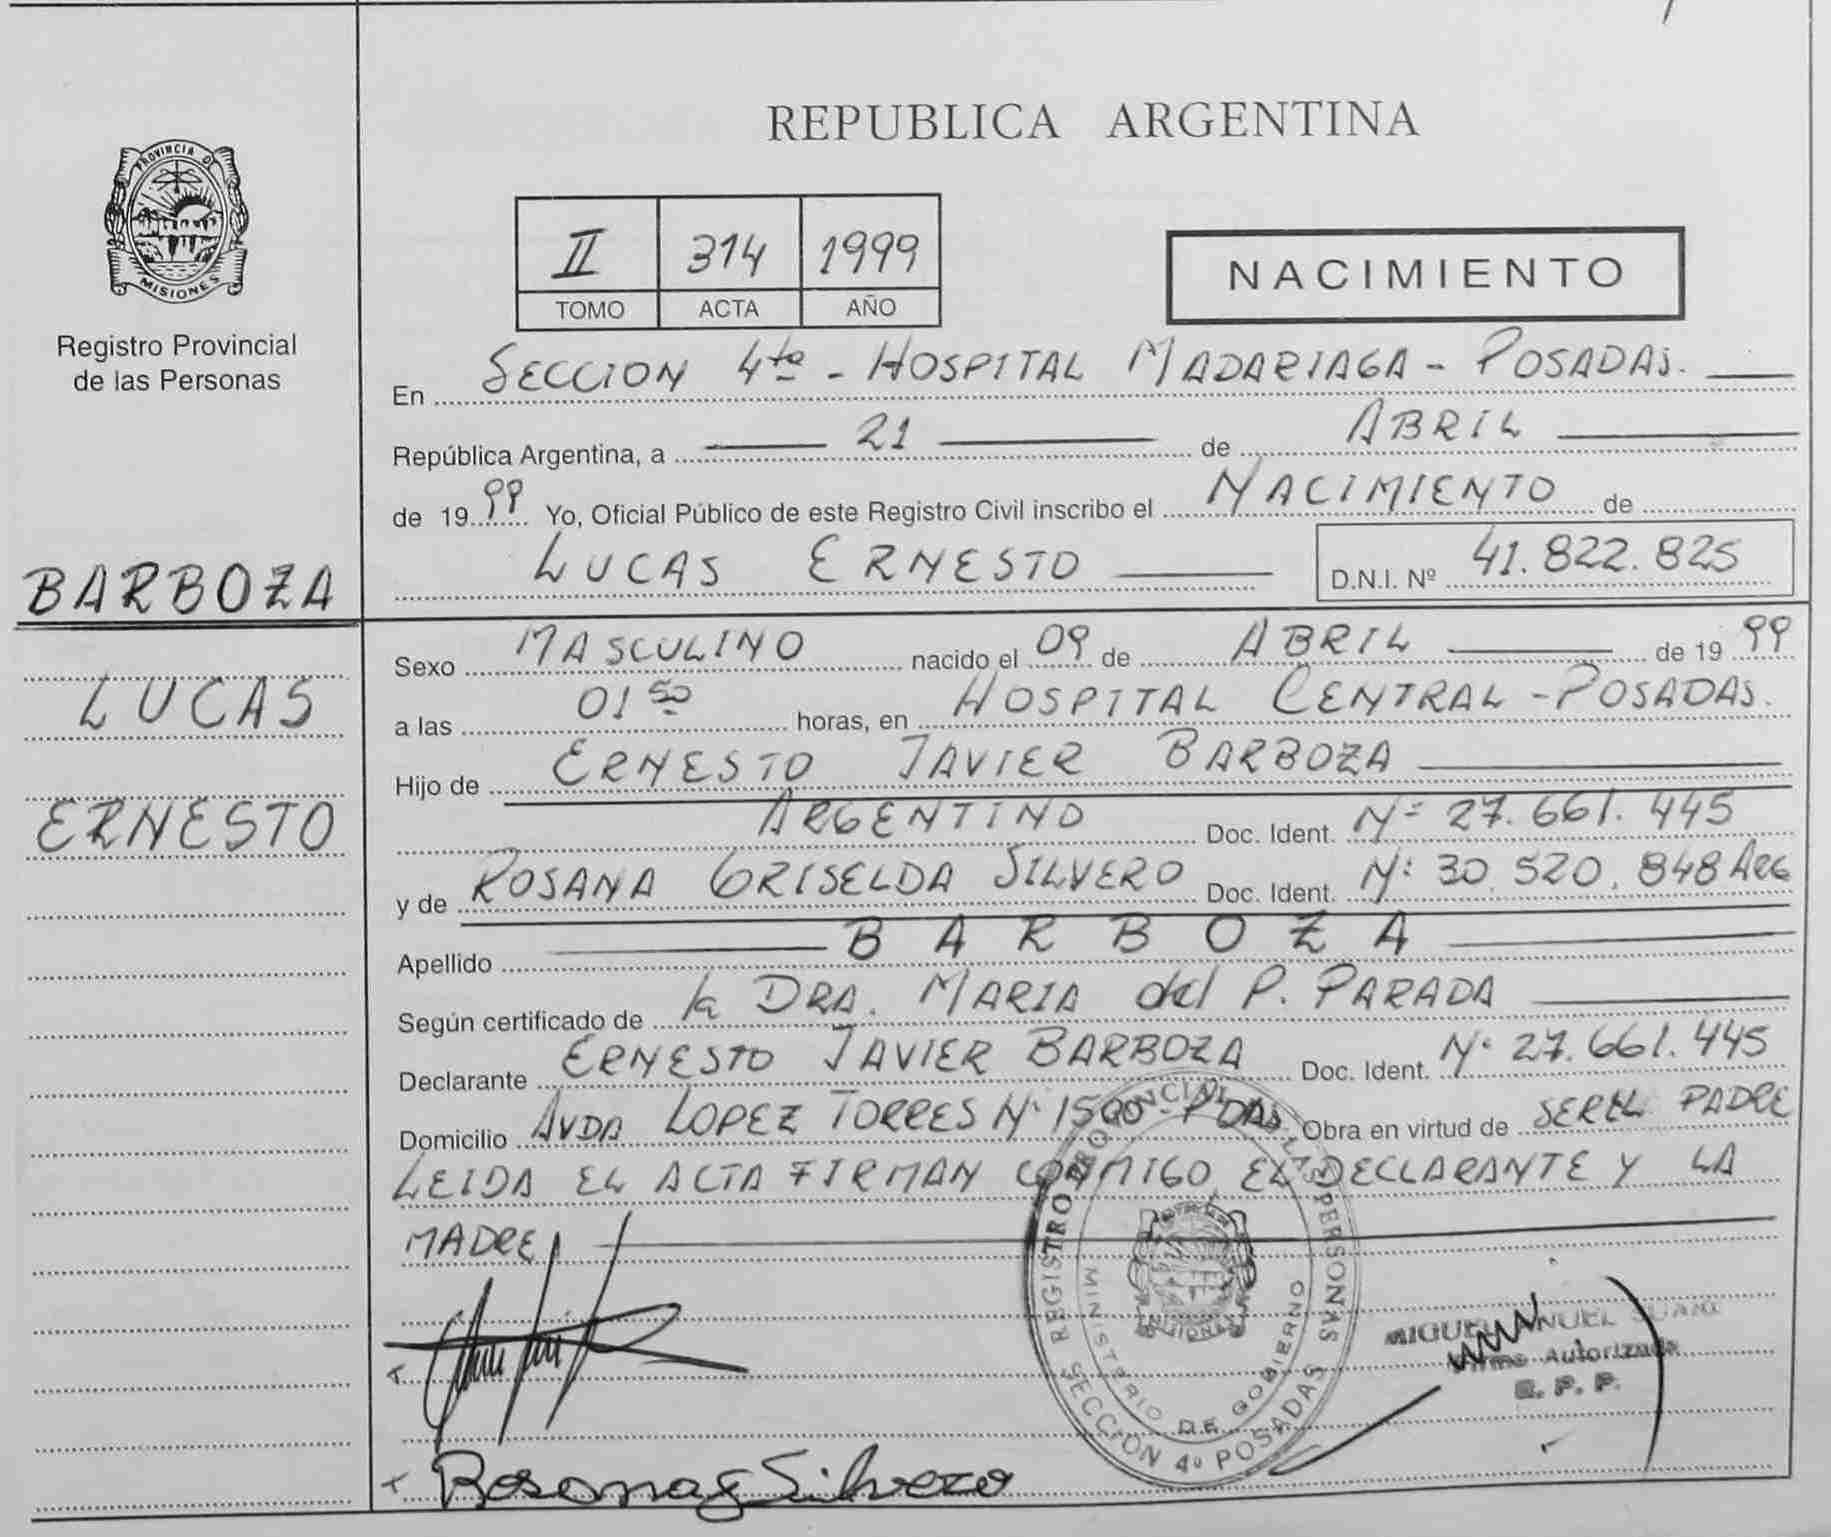 REPUBLICA ARGENTINA
PROVINCIA DE
MISIONES
Registro Provincial
de las Personas
II 314 1999
TOMO ACTA AÑO
NACIMIENTO
En SECCION 4ta - HOSPITAL MADARIAGA - POSADAS.
República Argentina, a 21 de ABRIL
de 1999 Yo, Oficial Público de este Registro Civil inscribo el NACIMIENTO de
LUCAS ERNESTO D.N.I. Nº 41.822.825
BARBOZA
LUCAS
ERNESTO
Sexo MASCULINO nacido el 09 de ABRIL de 1999
a las 01 50 horas, en HOSPITAL CENTRAL - POSADAS.
Hijo de ERNESTO JAVIER BARBOZA
ARGENTINO Doc. Ident. Nº 27.661.445
y de ROSANA GRISELDA SILVERO Doc. Ident. Nº 30.520.848 ARG
Apellido BARBOZA
Según certificado de la DRA. MARIA del P. PARADA
Declarante ERNESTO JAVIER BARBOZA Doc. Ident. Nº 27.661.445
Domicilio AVDA LOPEZ TORRES Nº 1500 - PDAS Obra en virtud de SER EL PADRE
LEIDA EL ACTA FIRMAN CONMIGO EL DECLARANTE Y LA
MADRE
REGISTRO PROVINCIAL DE LAS PERSONAS
MINISTERIO DE GOBIERNO
SECCION 4º POSADAS
MIGUEL
Firma Autorizada
R. P. P.
Rosana G Silvero